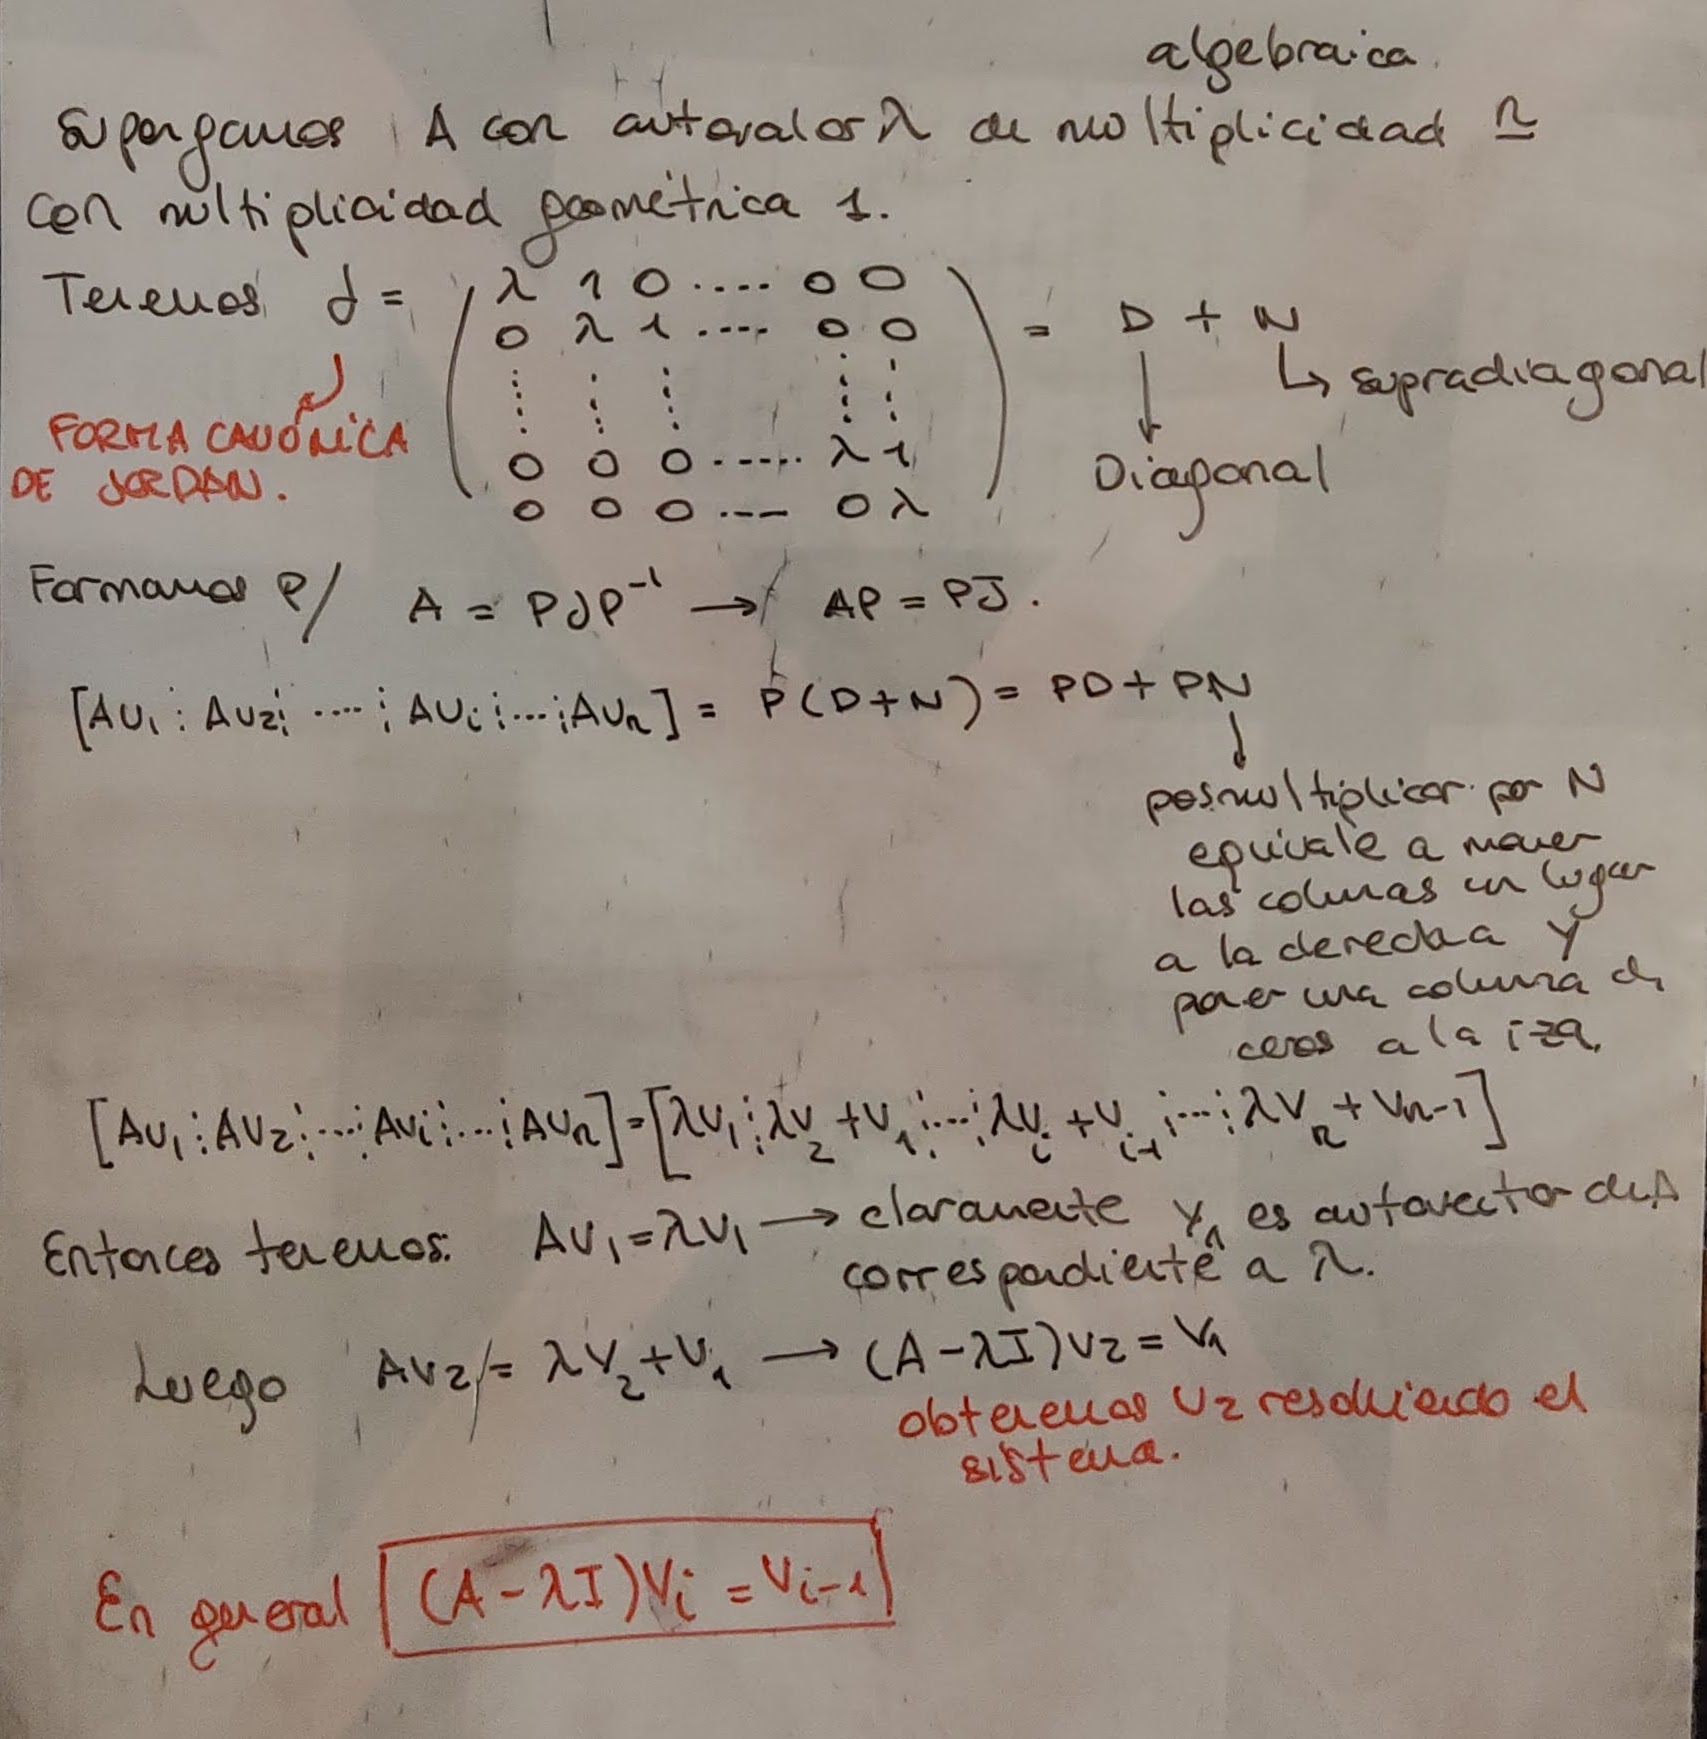 algebraica
Supongamos A con autovalor λ de multiplicidad n
con multiplicidad geométrica 1.
Tenemos J = ( λ 1 0 ..... 0 0
0 λ 1 ..... 0 0
⋮ ⋮ ⋮ ⋮ ⋮
0 0 0 ..... λ 1
0 0 0 ..... 0 λ ) = D + N
↳ supradiagonal
Diagonal
FORMA CANÓNICA
DE JORDAN.
Formamos P/ A = PJP⁻¹ → AP = PJ.
[Av₁ ⋮ Av₂ ⋮ ..... ⋮ Avᵢ ⋮ ... ⋮ Avₙ] = P(D+N) = PD + PN
posmultiplicar por N
equivale a mover
las colunas un lugar
a la derecha y
poner una columna de
ceros a la izq.
[Av₁ ⋮ Av₂ ⋮ ... ⋮ Avᵢ ⋮ ... ⋮ Avₙ] = [λv₁ ⋮ λv₂ + v₁ ⋮ ... ⋮ λvᵢ + vᵢ₋₁ ⋮ ... ⋮ λvₙ + vₙ₋₁]
Entonces tenemos: Av₁ = λv₁ → claramente v₁ es autovector de A
correspondiente a λ.
Luego Av₂ = λv₂ + v₁ → (A - λI)v₂ = v₁
obtenemos v₂ resolviendo el
sistema.
En general (A - λI)vᵢ = vᵢ₋₁